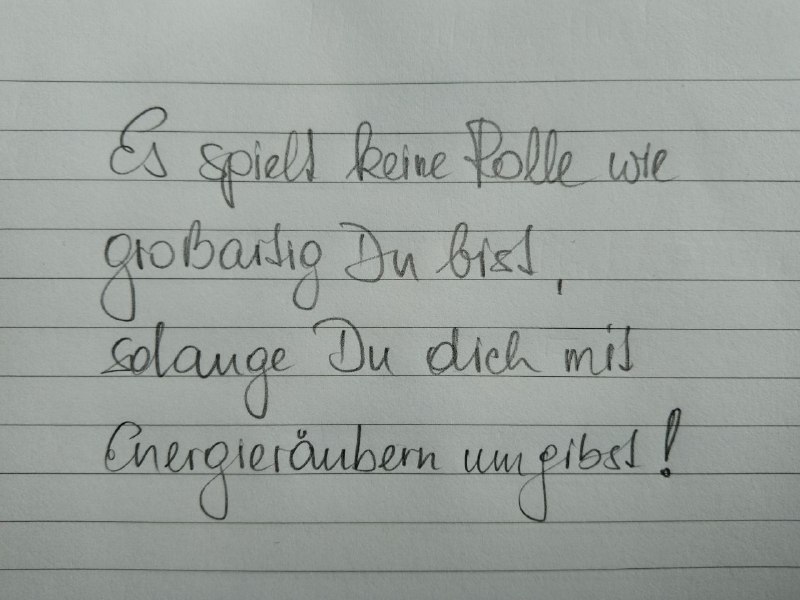 Es spielt keine Rolle wie
großartig Du bist,
solange Du dich mit
Energieräubern umgibst!